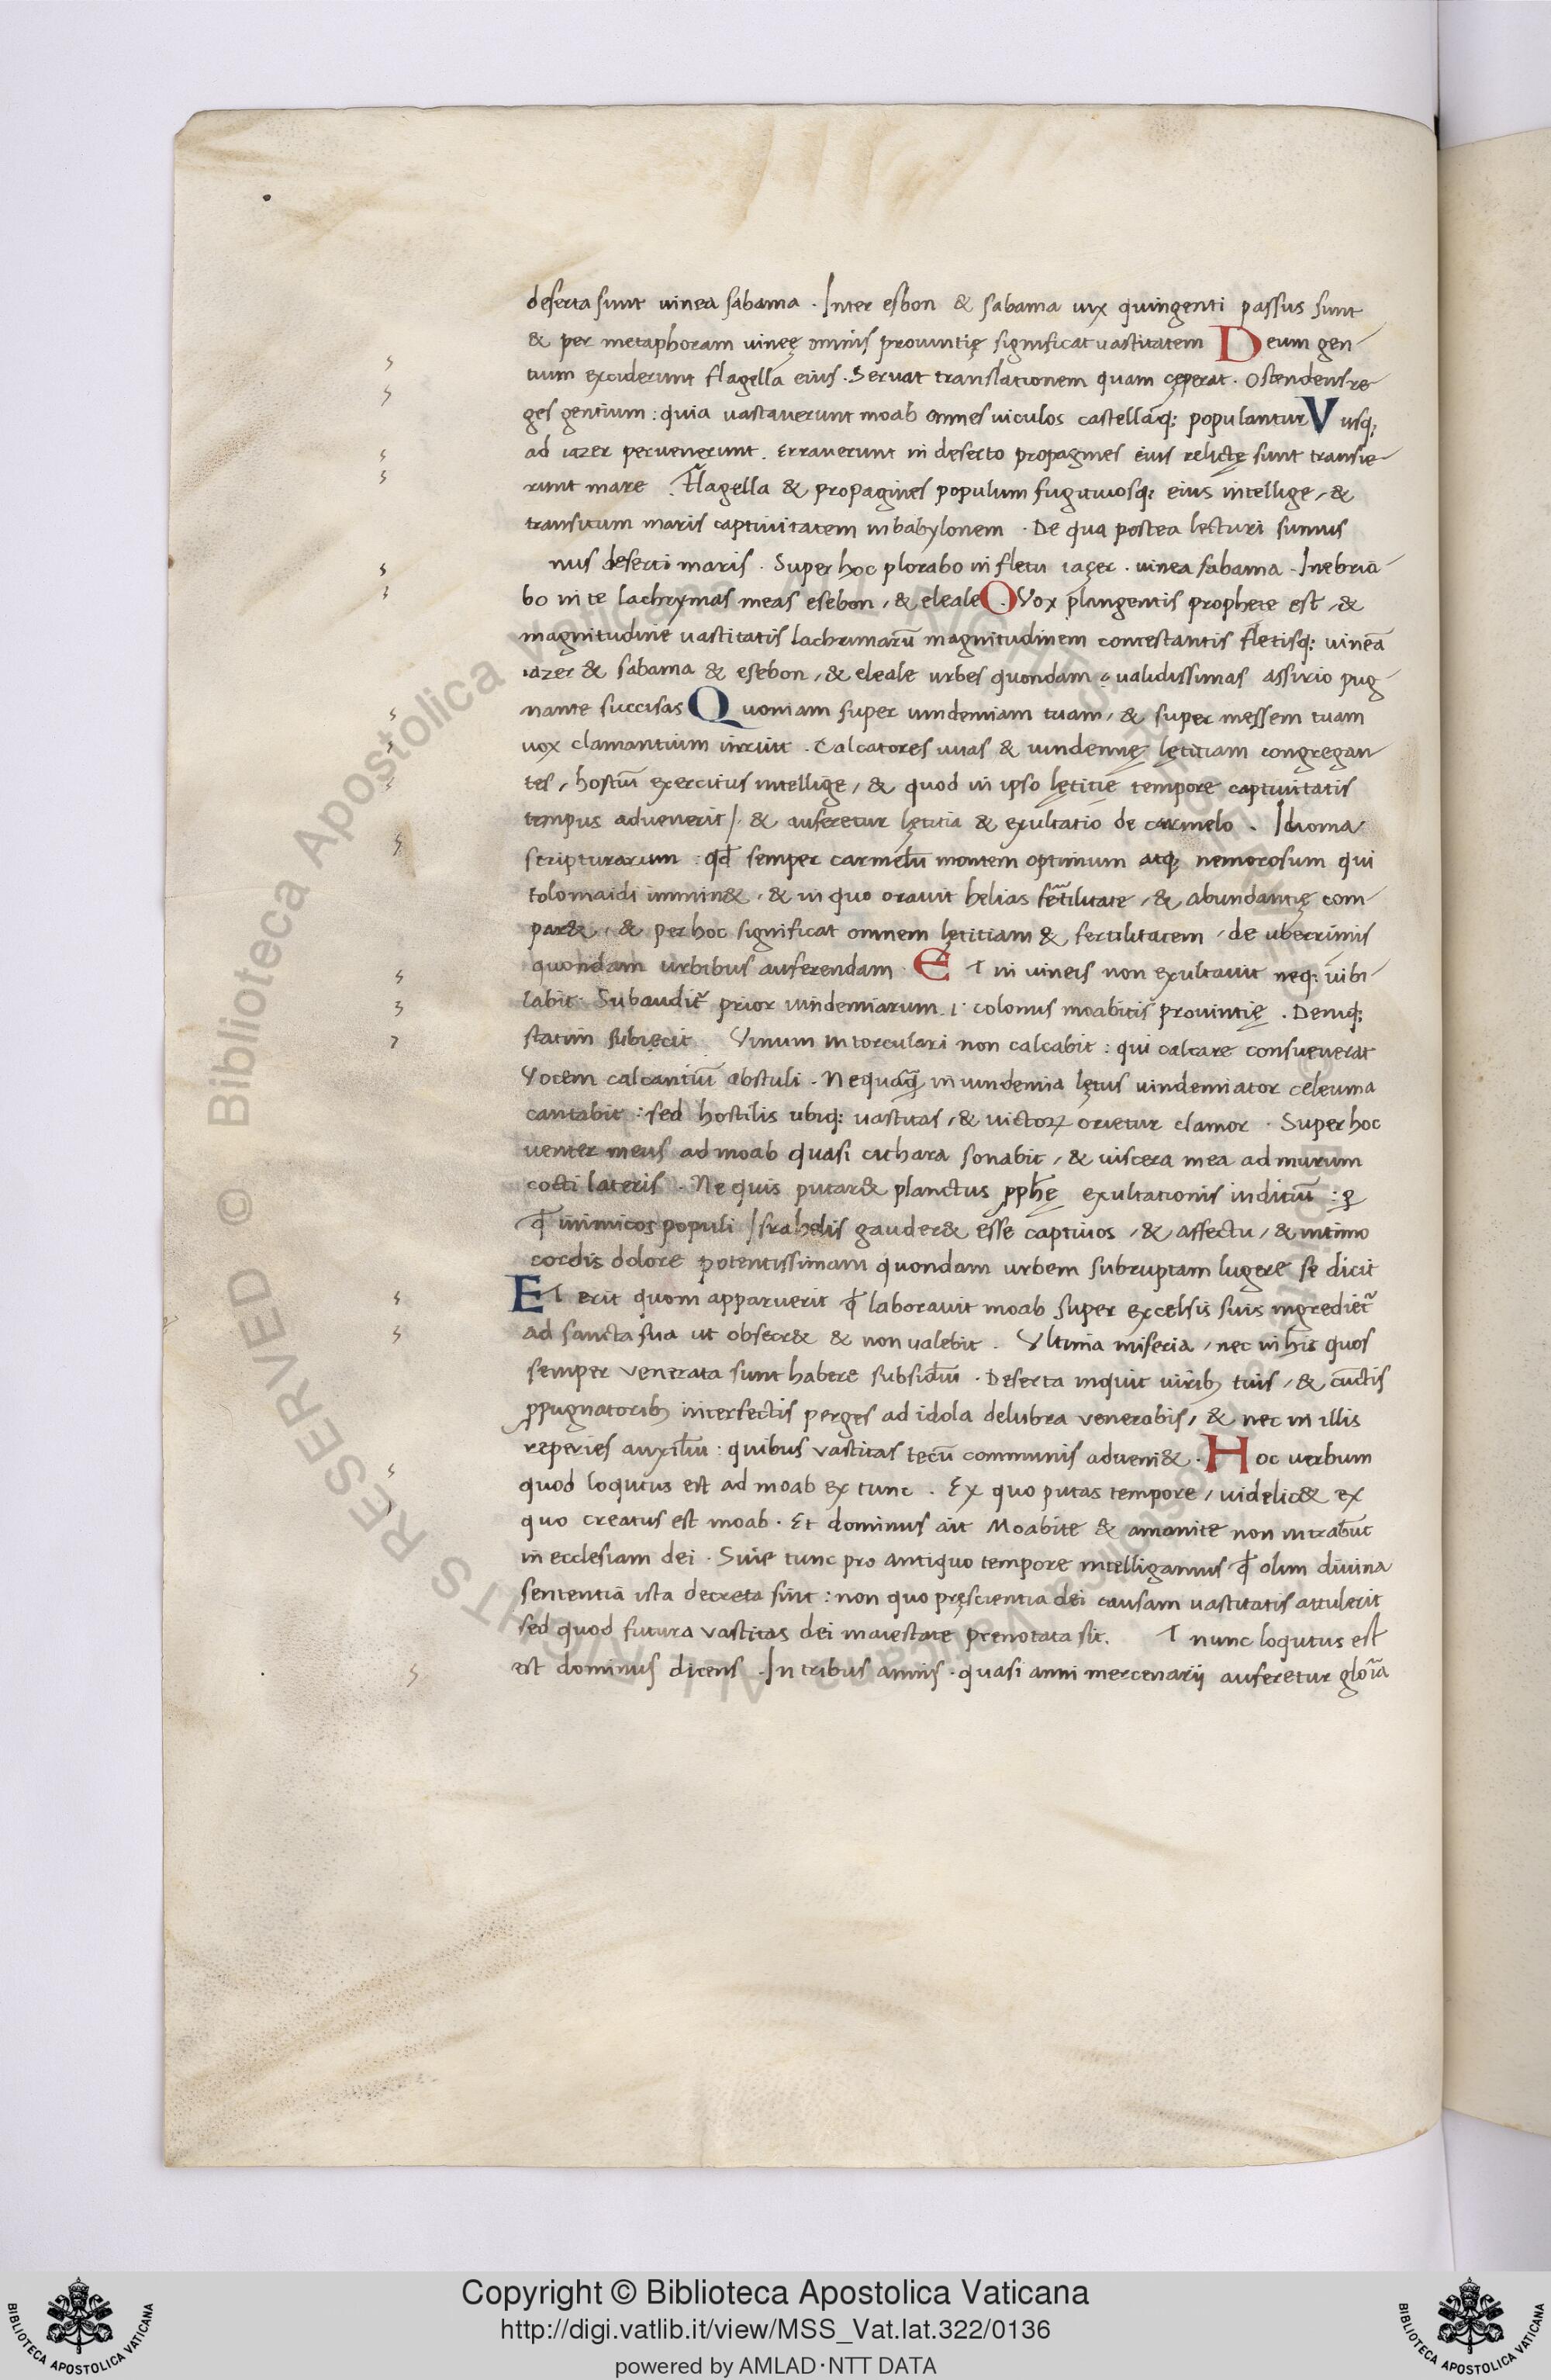 deserta sunt uinea sabama . Inter esbon & sabama uix quingenti passus sunt
& per metaphoram uineę omnis prouintię significat uastitatem Deum gen
tium exciderunt flagella eius . Seruat translationem quam cęperat . Ostendens re
ges gentium : quia uastauerunt moab omnes uiculos castellaq; populantur Vusq;
ad iazer peruenerunt . Errauerunt in deserto propagines eius relictę sunt transie
runt mare . Flagella & propagines populum fugitiuosq; eius intellige , &
transitum maris captiuitatem in babylonem . De qua postea lecturi sumus
nus deserti maris . Super hoc plorabo in fletu iaçer . uinea sabama . Inebria
bo in te lachrymas meas esebon , & eleale O. Vox plangentis prophete est , &
magnitudine uastitatis lachrimarū magnitudinem contestantis fletisq; uineā
iazer & sabama & esebon , & eleale urbes quondam ualidissimas assirio pug
nante succisas Quoniam super uindemiam tuam , & super messem tuam
uox clamantium irruit . Calcatores uuas & uindemię lętitiam congregan
tes , hostiū exercitus intellige , & quod in ipso lętitię tempore captiuitatis
tempus aduenerit / . & auferetur lętitia & exultatio de carmelo . Idioma
scripturarum : qđ semper carmelū montem optimum atq; nemorosum qui
tolomaidi immin& , & in quo orauit helias fertilitate , & abundantię com
par& , & per hoc significat omnem lętitiam & fertilitatem , de uberrimis
quondam urbibus auferendam . ET in uineis non exultauit neq; uibi
labit . Subaudit᷑ prior uindemiarum . i . colonus moabitis prouintię . Deniq;
statim subiecit . Vinum in torculari non calcabit : qui calcare consueuerat
Vocem calcantiū abstuli . Nequaq̄ in uindemia lętus uindemiator celeuma
cantabit : sed hostilis ubiq; uastitas , & uictoꝝ orietur clamor . Super hoc
uenter meus ad moab quasi cithara sonabit , & uiscera mea ad murum
cocti lateris . Ne quis putar& planctus ꝓph̄ę exultationis inditiū : ꝑ
qđ inimicos populi Israhelis gauder& esse captiuos , & affectu , & intimo
cordis dolore potentissimam quondam urbem subruptam lugere se dicit
ET erit quom apparuerit qđ laborauit moab super excelsis suis ingrediet᷑
ad sancta sua ut obsecr& & non ualebit . Vltima miseria , nec in his quos
semper venerata sunt habere subsidiū . Deserta inquit uirib; tuis , & cūctis
ꝓpugnatorib; interfectis perges ad idola delubra venerabis , & nec in illis
reperies auxiliū : quibus vastitas tecū communis adueni& . Hoc uerbum
quod loqutus est ad moab ex tunc . Ex quo putas tempore , uidelic& ex
quo creatus est moab . Et dominus ait Moabite & amanite non intrabūt
in ecclesiam dei . Siue tunc pro antiquo tempore intelligamus qđ olim diuina
sententia ista decreta sint : non quo pręscientia dei causam uastitatis attulerit
sed quod futura vastitas dei maiestate prenotata sit . T nunc loqutus est
est dominus dicens . In tribus annis . quasi anni mercenarij auferetur gloīa
Copyright © Biblioteca Apostolica Vaticana
http://digi.vatlib.it/view/MSS_Vat.lat.322/0136
powered by AMLAD·NTT DATA